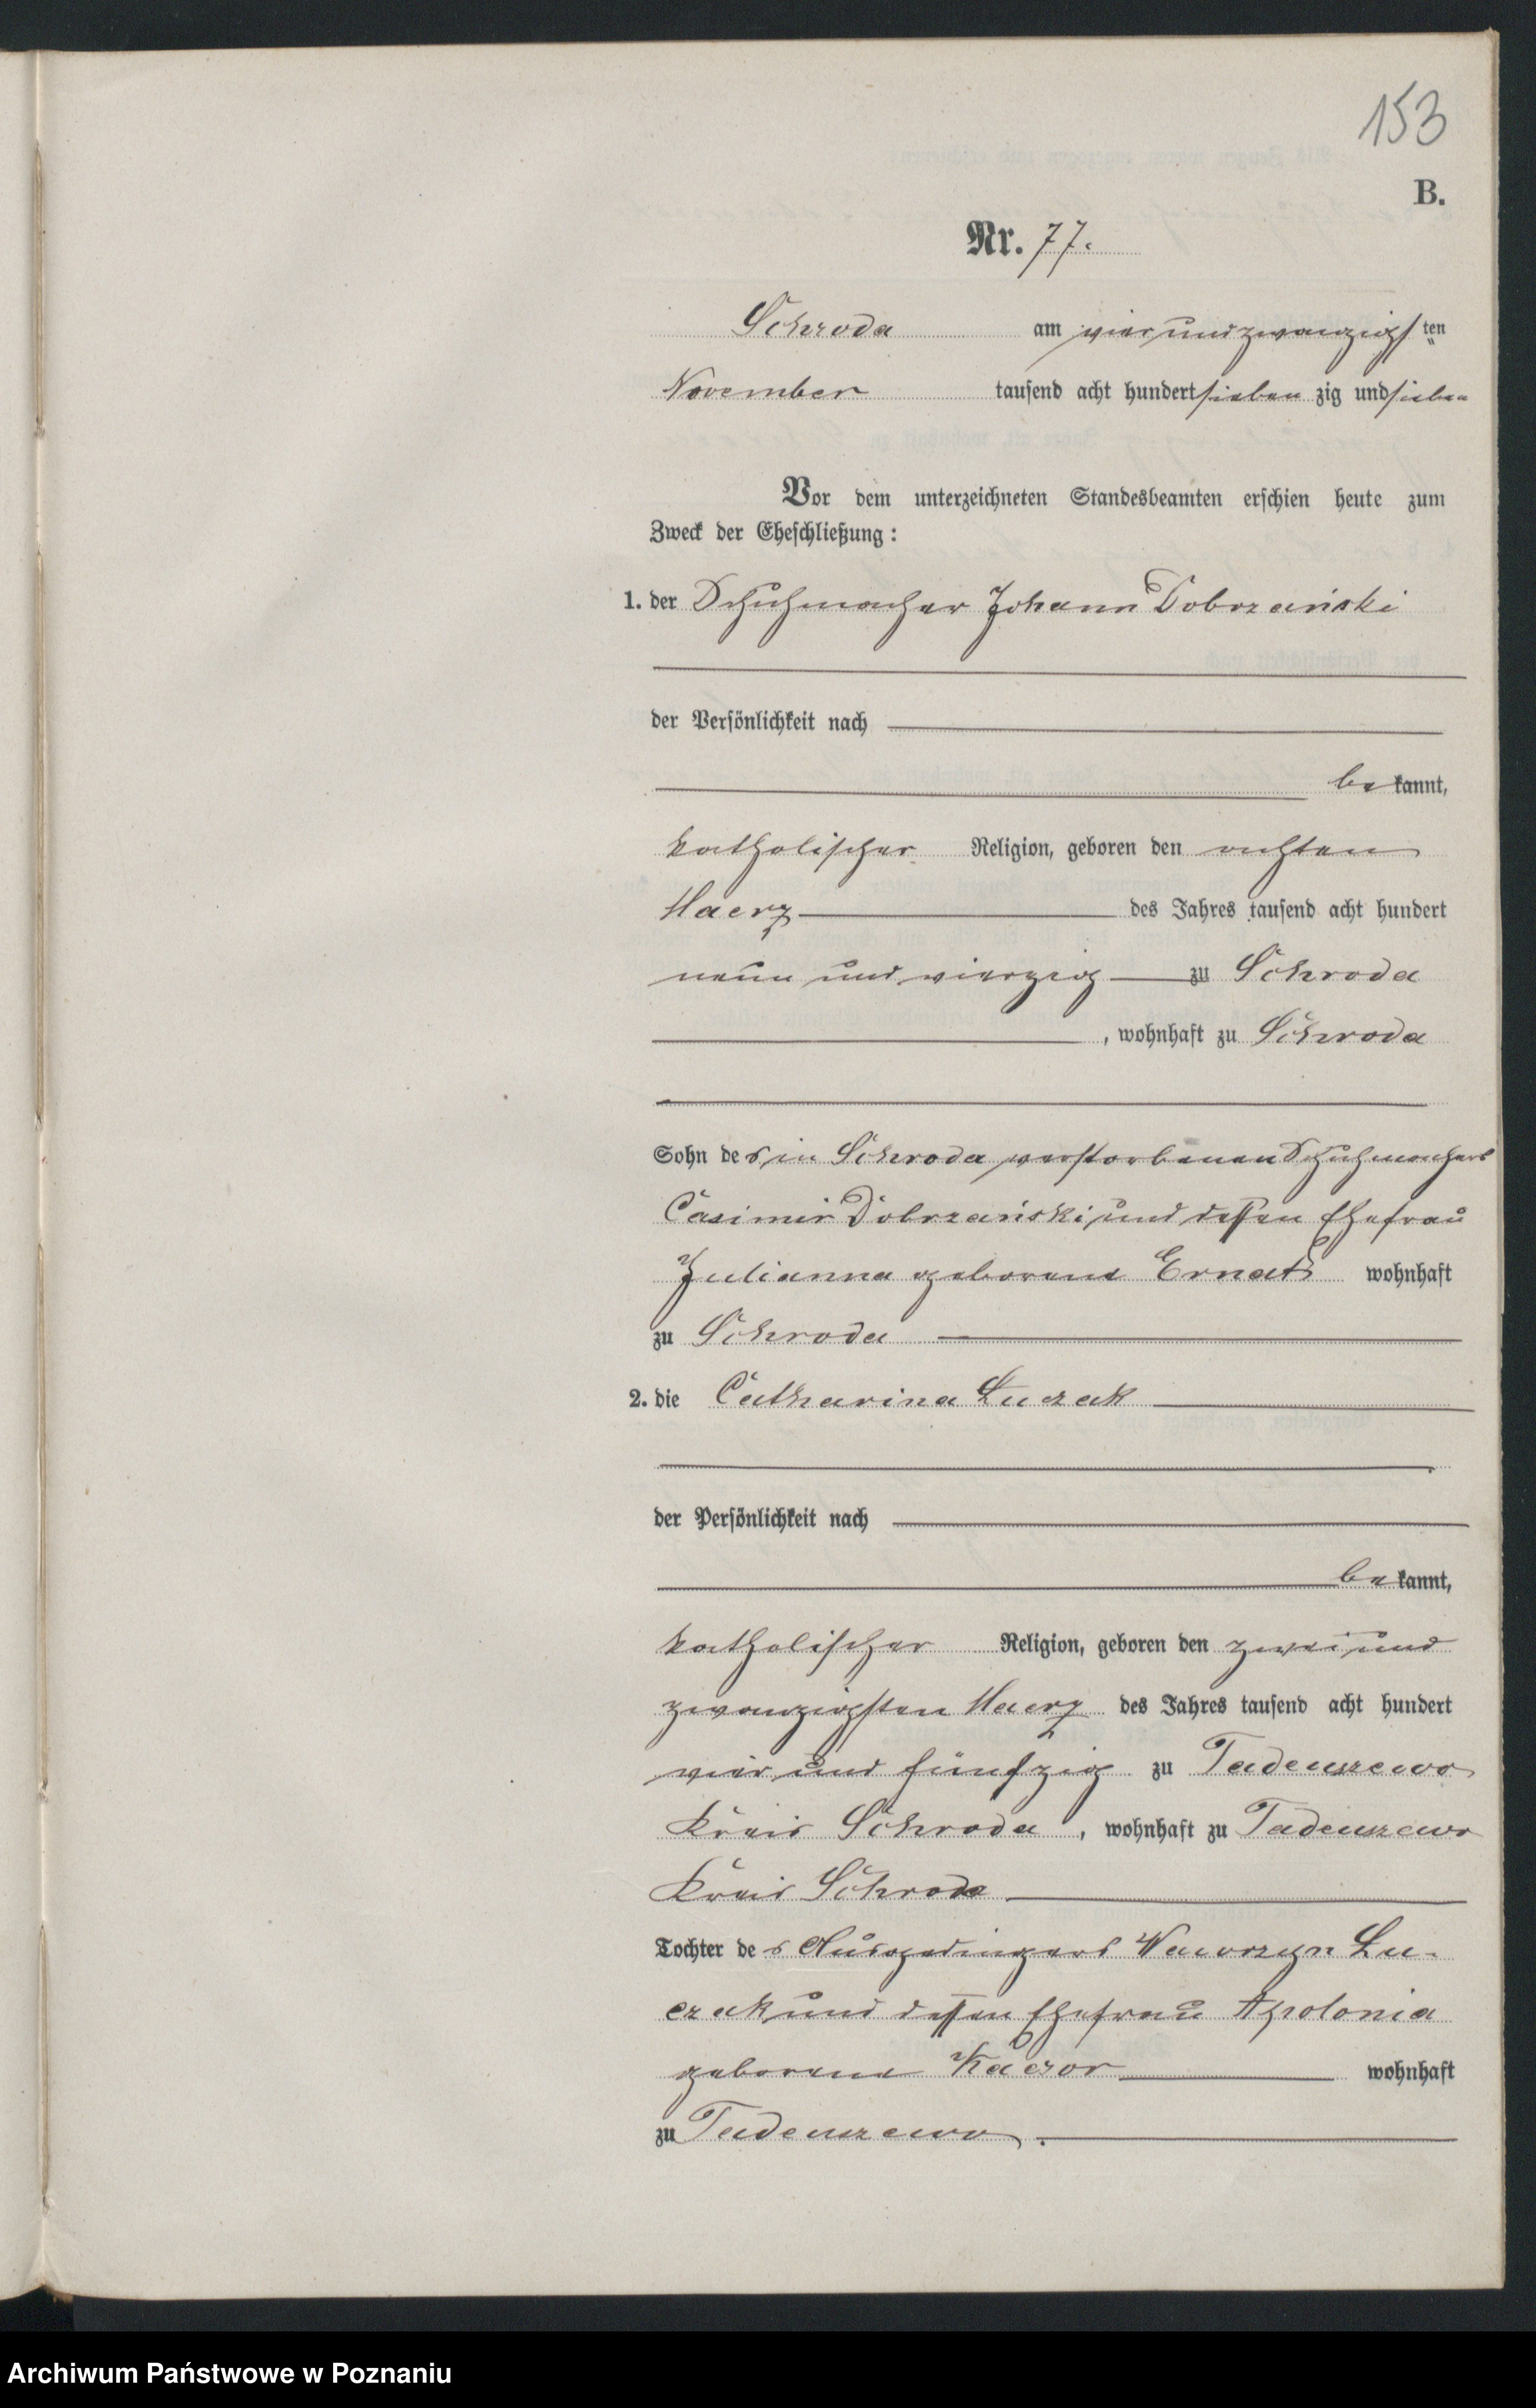 153
B.
Nr. 77.
Schroda am vier und zwanzigsten
November tausend acht hundert sieben zig und sieben
Vor dem unterzeichneten Standesbeamten erschien heute zum
Zweck der Eheschließung:
1. der Schuhmacher Johann Dobrzański
der Persönlichkeit nach
be kannt,
katholischer Religion, geboren den achten
Maerz des Jahres tausend acht hundert
neun und vierzig zu Schroda
, wohnhaft zu Schroda
Sohn des in Schroda verstorbenen Schuhmachers
Casimir Dobrzański und dessen Ehefrau
Julianna geborene Ernat wohnhaft
zu Schroda
2. die Catharina Łuczak
der Persönlichkeit nach
be kannt,
katholischer Religion, geboren den zwei und
zwanzigsten Maerz des Jahres tausend acht hundert
vier und fünfzig zu Tadeuszewo
Kreis Schroda, wohnhaft zu Tadeuszewo
Kreis Schroda
Tochter des Ausgedingers Wawrzyn Łu-
czak und dessen Ehefrau Apolonia
geborene Kaczor wohnhaft
zu Tadeuszewo.
Archiwum Państwowe w Poznaniu